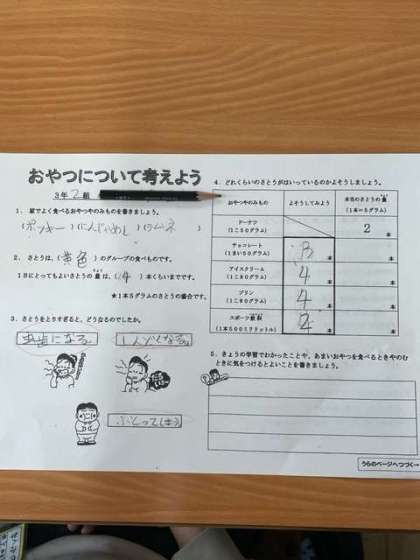 おやつについて考えよう
3年 2 組
1．家でよく食べるおやつやのみものを書きましょう。
(ポッキー)(にんじゃめし)(ラムネ)
2．さとうは、(黄色)のグループの食べものです。
1日にとってもよいさとうの量は、(4)本くらいまでです。
★1本5グラムのさとうの場合です。
3．さとうをとりすぎると、どうなるのでしたか。
虫歯になる。
しんどくなる。
ふとってしまう
4．どれくらいのさとうがはいっているのかよそうしましょう。
おやつやのみもの
よそうしてみよう
本当のさとうの量
(1本=5グラム)
ドーナツ
(1こ50グラム)
2 本
チョコレート
(1まい50グラム)
3 本
本
アイスクリーム
(1こ80グラム)
4 本
本
プリン
(1こ90グラム)
4 本
本
スポーツ飲料
(1本500ミリリットル)
2 本
本
5．きょうの学習でわかったことや、あまいおやつを食べるときやのむ
ときに気をつけるとよいことを書きましょう。
うらのページへつづく→